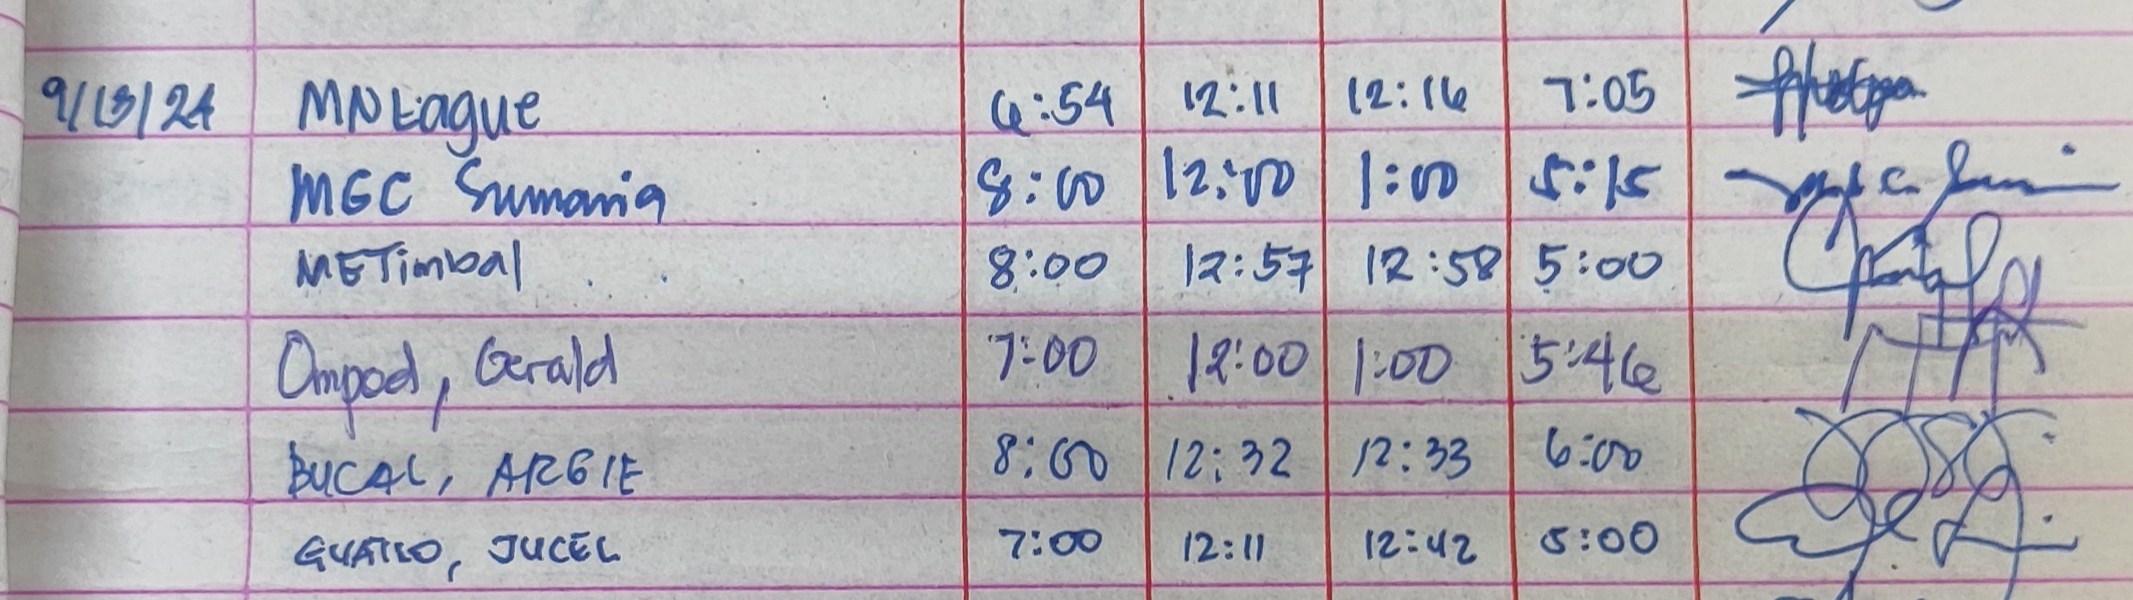 9/13/24 MNLague 6:54 12:11 12:16 7:05
MGC Sumania 8:00 12:00 1:00 5:15
METimbal 8:00 12:57 12:58 5:00
Ompod, Gerald 7:00 12:00 1:00 5:46
BUCAL, ARGIE 8:00 12:32 12:33 6:00
JUCEL 7:00 12:11 12:42 5:00